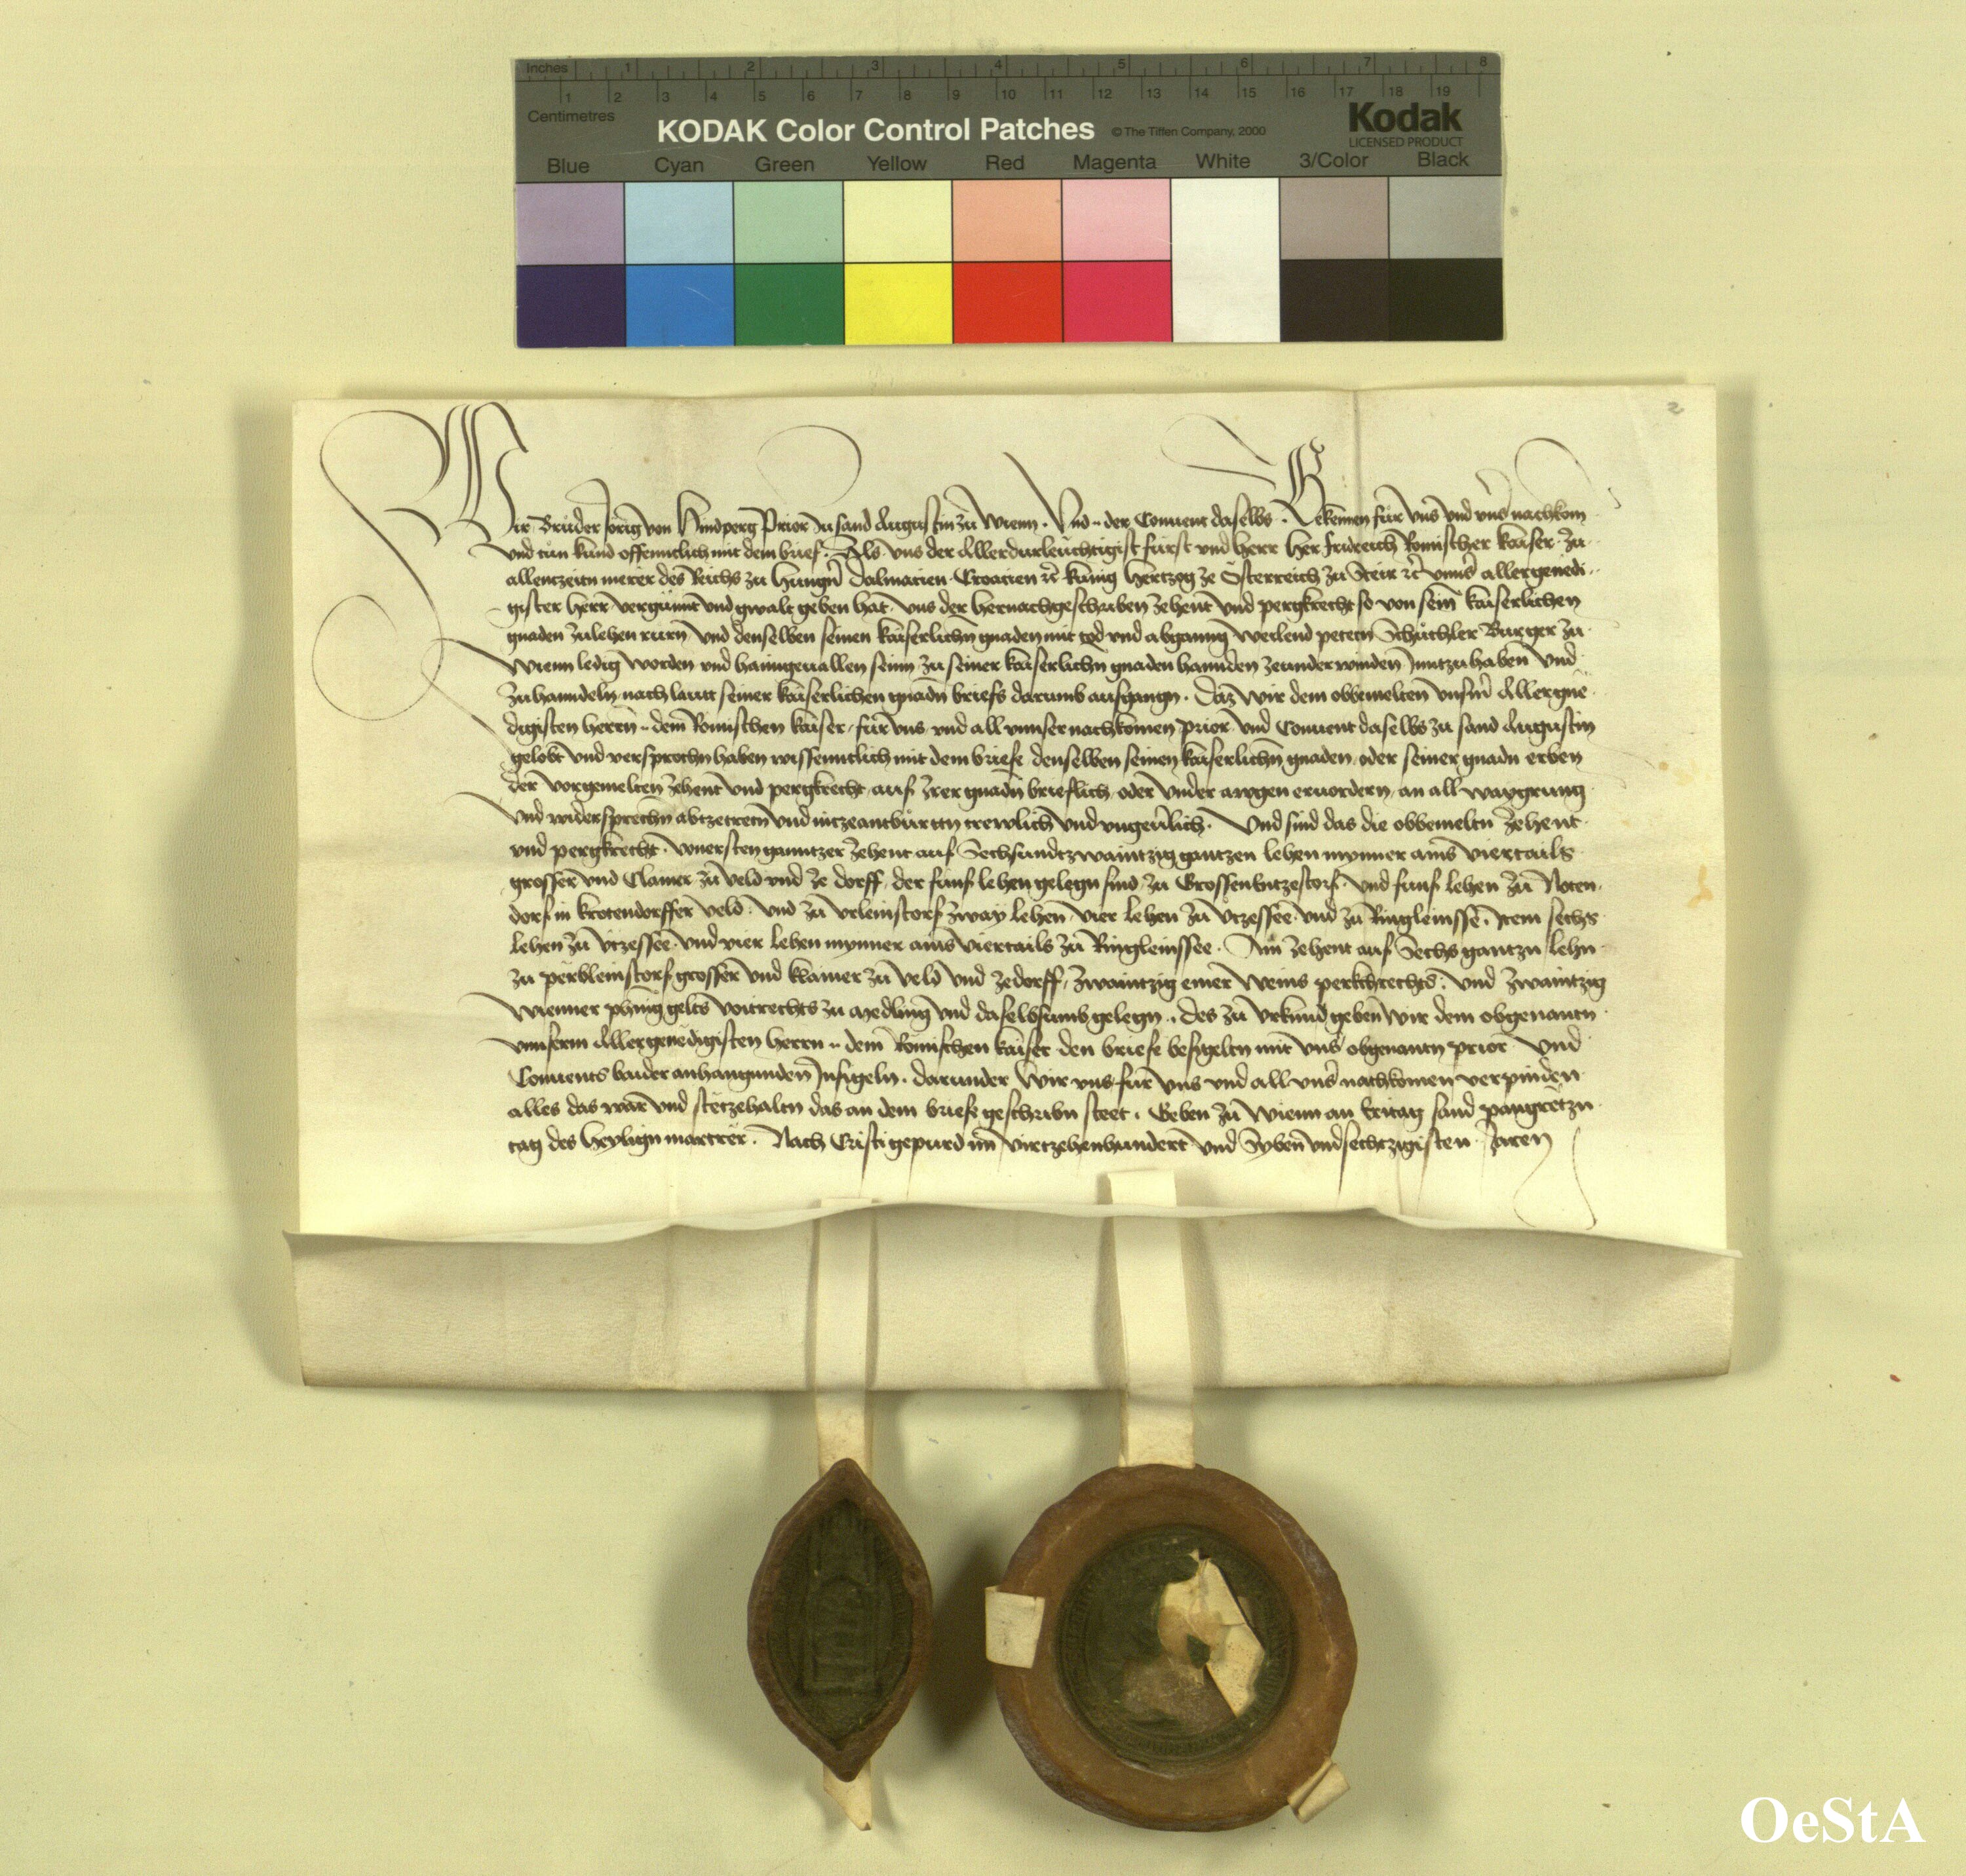 Inches 1 2 3 4 5 6 7 8
1 2 3 4 5 6 7 8 9 10 11 12 13 14 15 16 17 18 19
Centimetres
KODAK Color Control Patches © The Tiffen Company, 2000 Kodak
LICENSED PRODUCT
Blue Cyan Green Yellow Red Magenta White 3/Color Black
2
Wir Bruder Jorig von Hindperg Prior zu sand Augustin zu Wienn. Vnd der Conuent daselbs. Bekennen fur vns vnd vnser nachkom
vnd tun kund offenntlich mit dem brief. Als vns der Allerdurleuchtigist furst vnd herr her fridreich Romischer kaiser zu
allenczeitn merer des Reichs zu Hungern Dalmacien Croacien etc kunig Hertzog ze Österreich zu Steir etc vnnser allergenedi
gister herr vergunnt vnd gwalt geben hat vns der hernachgeschriben zehent vnd pergkrecht so von sein kaiserlichen
gnaden zulehen rurn vnd denselben seinen kaiserlichn gnaden mit tod vnd abganng weilend petern Schuchler Burger zu
Wienn ledig worden vnd haimgeuallen seinn zu seiner kaiserlichn gnaden hannden zeunderwinden Innzuhaben vnd
zuhanndeln nach lautt seiner kaiserlichen gnadn briefs darumb ausgangn. Daz wir dem obbemelten vnserm Allergne
digisten herrn dem Romischen kaiser fur vns vnd all vnnser nachkomen prior vnd Conuent daselbs zu sand Augustin
gelobt vnd versprochn haben wissenntlich mit dem briefe denselben seinen kaiserlichn gnaden oder seiner gnadn erben
der vorgemelten zehent vnd pergkrecht auf Irer gnadn brieflich oder vnder awgen eruordern an all waygrung
vnd widersprechn abtzetretn vnd intzeantwurttn trewlich vnd vngeuerlich. Vnd sind das die obbemeltn zehent
vnd pergkrecht. Vonersten ganntzer zehent auf Sechsundtzwaintzig gantzen lehen mynner ains viertails
grosser vnd Clainer zu veld vnd ze dorff der funf lehen gelegn sind zu Grossen Entzestorf vnd funf lehen zu Noten
dorf in krotendorffer veld vnd zu vrleinstorf zway lehen vier lehen zu vtzessee vnd zu Ringleinssee. Item sechs
lehen zu vtzessee vnd vier lehen mynner ains viertails zu Ringleinssee. Ain zehent auf Sechs gantzn lehn
zu perbleinstorf grosser vnd klainer zu veld vnd zedorff zwaintzig emer weins perkchrechts vnd zwaintzig
Wienner phenig gelts voitrechts zu Medling vnd daselbsumb gelegn. Des zu vrkund geben wir dem obgenantn
vnnserm Allergenedigisten herrn dem Romischen kaiser den briefe besigeltn mit vnser obgenantn prior vnd
Conuents baider anhangunden Insigeln. darunder wir vns fur vns vnd all vnser nachkomen verpinden
alles das war vnd stetzehaltn das an dem briefe geschribn steet. Geben zu Wienn an Eritag sand pangretzn
tag des heylign martrer. Nach Cristi gepurd im virtzehenhundert vnd Syben vnd sechtzigisten Jaren
OeStA